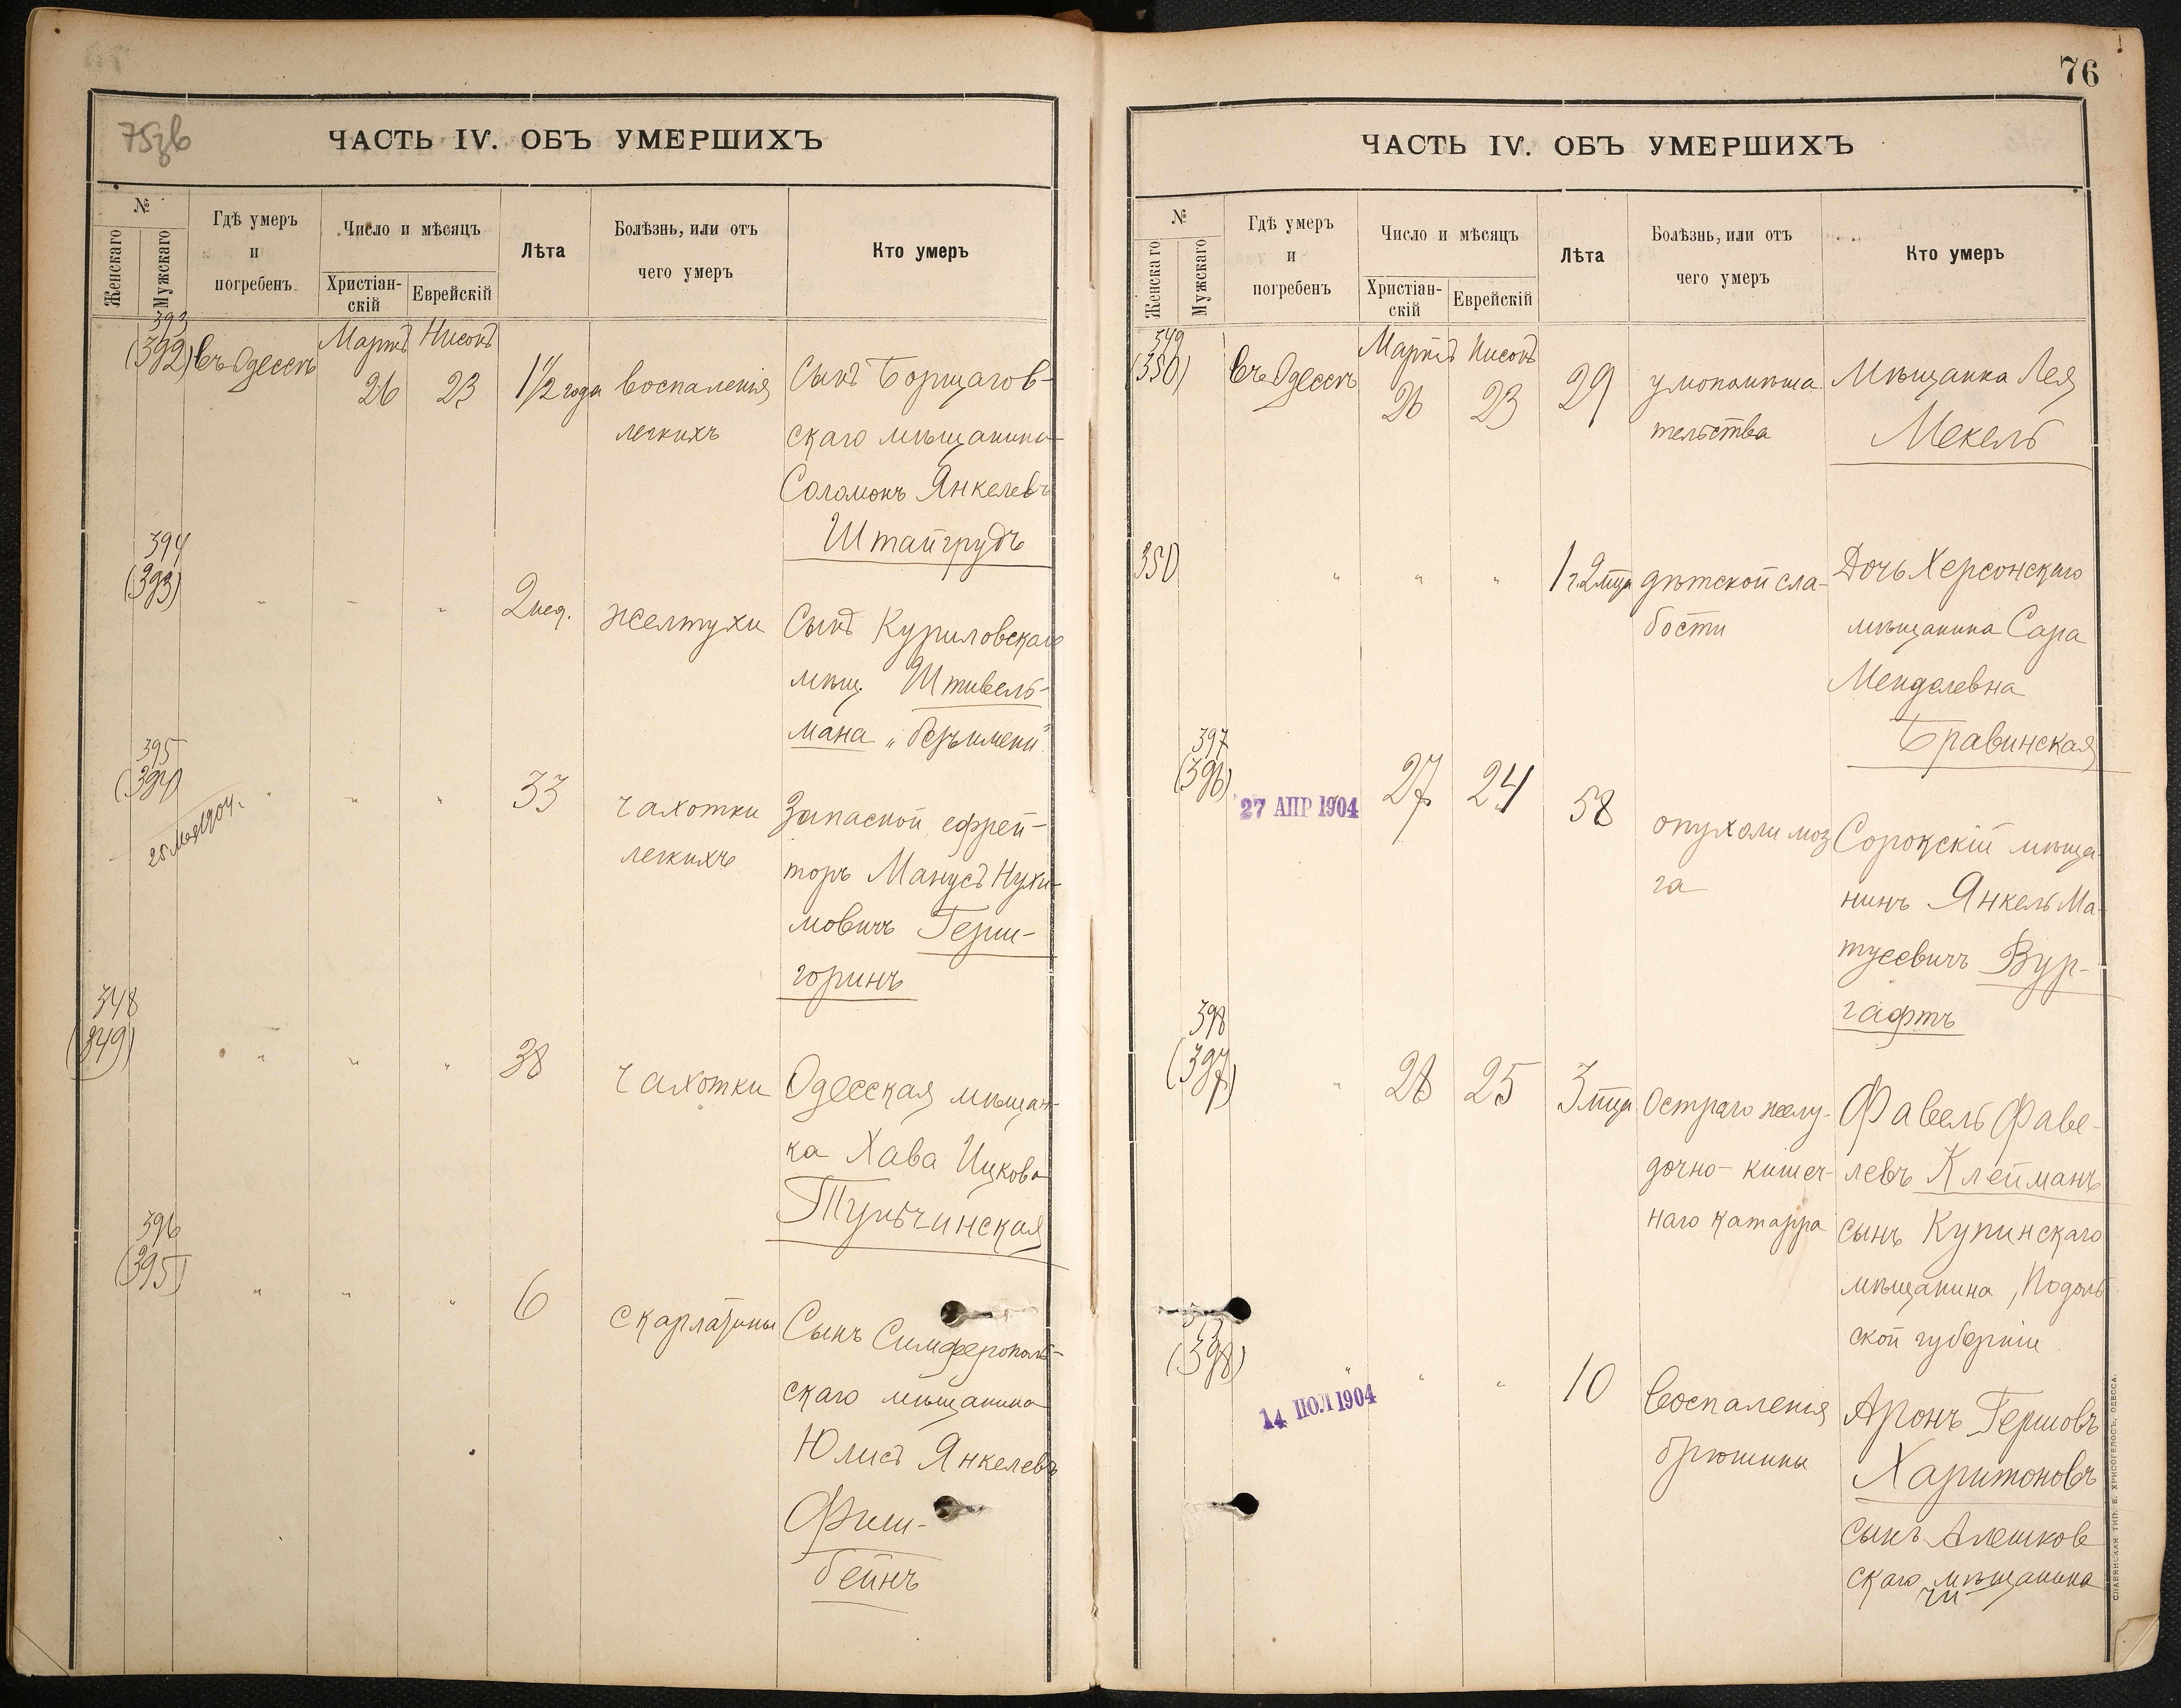 75зв
ЧАСТЬ IV. ОБЪ УМЕРШИХЪ
№
Женскаго
Мужскаго
Гдѣ умеръ
и
погребенъ
Число и мѣсяцъ
Христіан-
скій
Еврейскій
Лѣта
Болѣзнь, или отъ
чего умеръ
Кто умеръ
393
(392)
въ Одессѣ
Мартъ
26
Нисонъ
23
1 1/2 года
воспаленія
легкихъ
Сынъ Борщагов-
скаго мѣщанина
Соломонъ Янкелевъ
Штайгрудъ
394
(393)
" " "
2 нед.
желтухи
Сынъ Куриловскаго
мѣщ. Штивель-
мана „безъ имени"
395
(394)
25 Мая 1904 г.
" " "
33
чахотки
легкихъ
Запасной ефрей-
торъ Манусъ Нухи-
мовичъ Герш-
горинъ
348
(349)
" " "
38
чахотки
Одесская мѣщан-
ка Хава Ицкова
Тульчинская
396
(395)
" " "
6
скарлатины
Сынъ Симферополь-
скаго мѣщанина
Юлисъ Янкелевъ
Фиш-
бейнъ
76
ЧАСТЬ IV. ОБЪ УМЕРШИХЪ
№
Женскаго
Мужскаго
Гдѣ умеръ
и
погребенъ
Число и мѣсяцъ
Христіан-
скій
Еврейскій
Лѣта
Болѣзнь, или отъ
чего умеръ
Кто умеръ
349
(350)
въ Одессѣ
Мартъ
26
Нисонъ
23
29
умопомѣша
тельства
Мѣщанка Лея
Мекель
350
" " "
1 г. 2 мца
дѣтской сла-
бости
Дочь Херсонскаго
мѣщанина Сара
Менделевна
Бравинская
397
(396)
27 АПР 1904
27
24
58
опухоли моз
га
Сорокскій мѣща-
нинъ Янкель Ма-
тусевичъ Вур-
гафтъ
398
(397)
"
28
25
3 мца
Остраго желу-
дочно-кишеч-
наго катарра
Фавель Фаве-
левъ Клейманъ
сынъ Купинскаго
мѣщанина, Подоль
ской губерніи.
(398)
" " "
14 ІЮЛ 1904
10
воспаленія
брюшины
Аронъ Гершовъ
Харитоновъ
сынъ Алешков
скаго мѣщанина
СЛАВЯНСКАЯ ТИП. Е. ХРИСОГЕЛОСЪ. ОДЕССА.